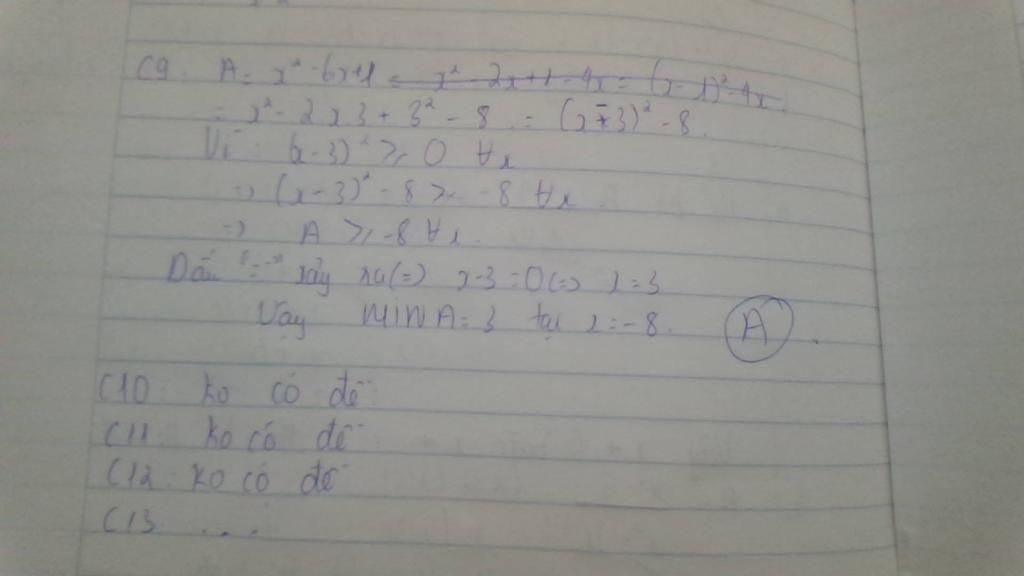 C9. A = x² - 6x+1 = x² - 2x+1 - 4x = (x-1)² - 4x
= x² - 2x3 + 3² - 8 = (x-3)² - 8.
Vì (x-3)² ≥ 0 ∀x
=> (x-3)² - 8 ≥ -8 ∀x
=> A ≥ -8 ∀x.
Dấu "=" xảy ra (=) x-3=0 (=> x=3
Vậy MIN A = 3 tại x = -8. A.
C10: ko có đề
C11 ko có đề
C12: ko có đề
C13 ....